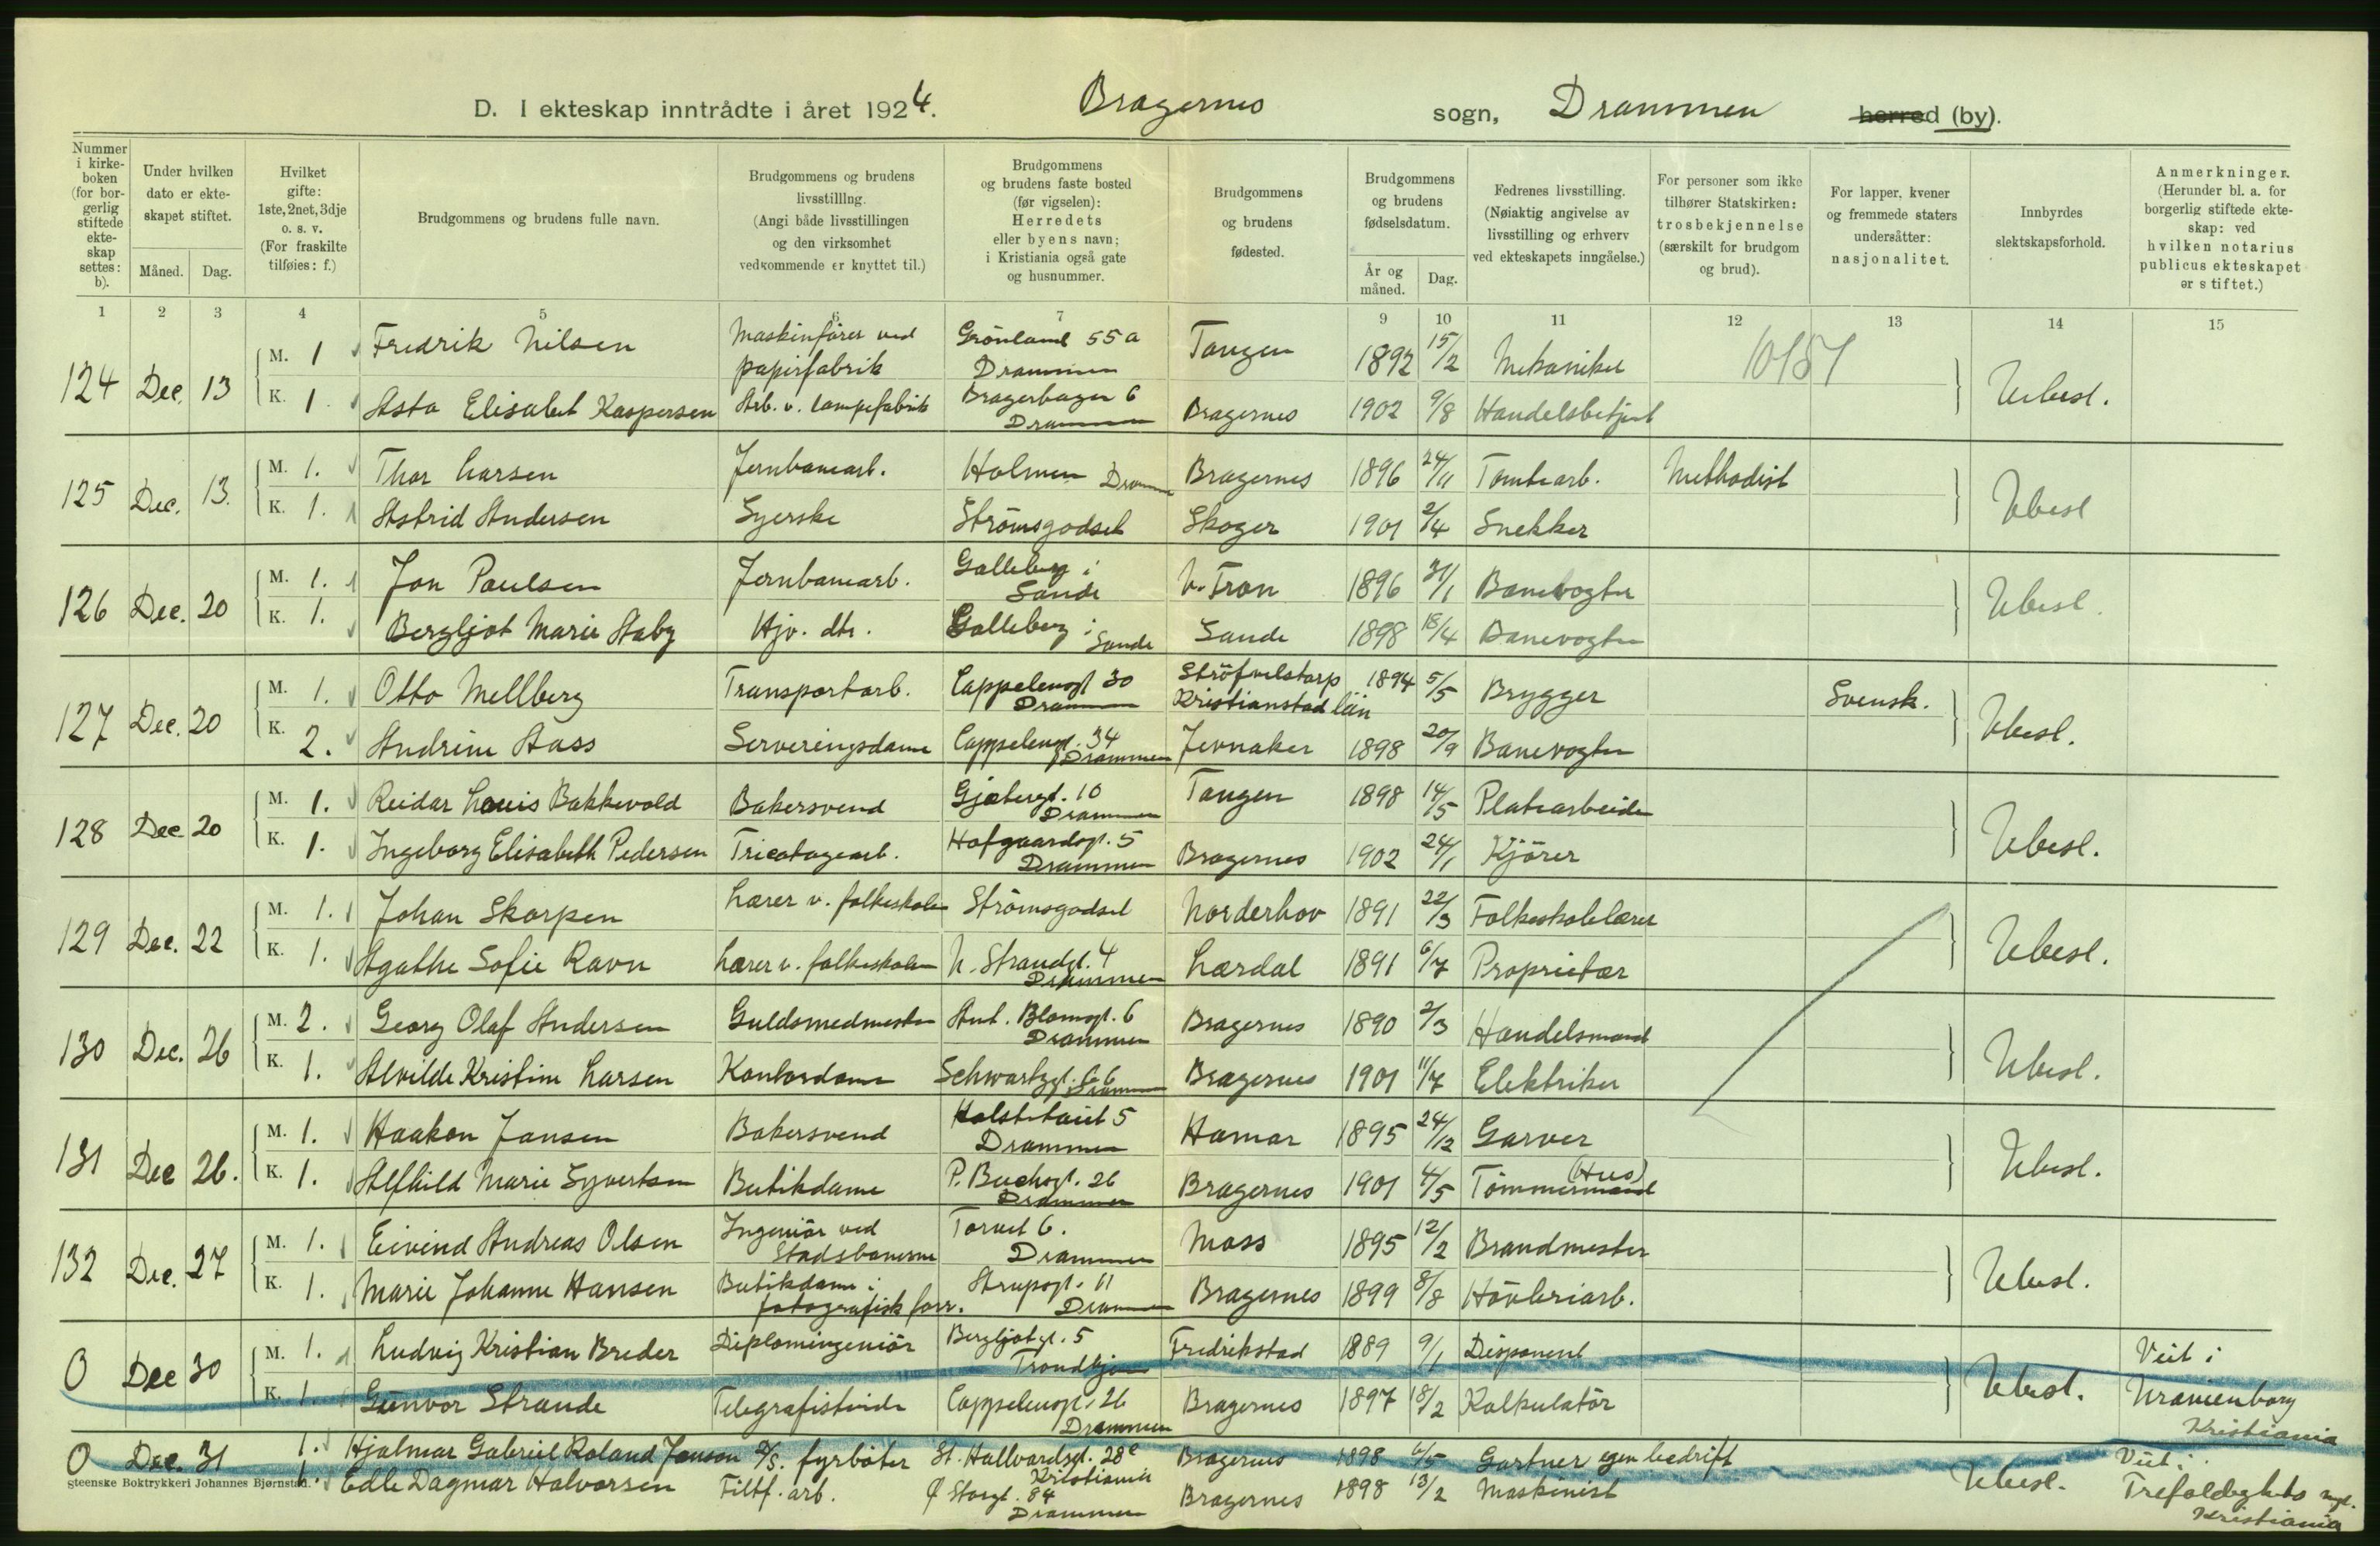 D. I ekteskap inntrådte i året 1924. Bragernes sogn, Drammen herred (by).
Nummer i kirkeboken (for borgerlig stiftede ekteskap settes: b).
Under hvilken dato er ekteskapet stiftet.
Måned. Dag.
Hvilket gifte: 1ste, 2net, 3dje o. s. v. (For fraskilte tilføies: f.)
Brudgommens og brudens fulle navn.
Brudgommens og brudens livsstilling. (Angi både livsstillingen og den virksomhet vedkommende er knyttet til.)
Brudgommens og brudens faste bosted (før vigselen): Herredets eller byens navn; i Kristiania også gate og husnummer.
Brudgommens og brudens fødested.
Brudgommens og brudens fødselsdatum.
År og måned. Dag.
Fedrenes livsstilling. (Nøiaktig angivelse av livsstilling og erhverv ved ekteskapets inngåelse.)
For personer som ikke tilhører Statskirken: trosbekjennelse (særskilt for brudgom og brud).
For lapper, kvener og fremmede staters undersåtter: nasjonalitet.
Innbyrdes slektskapsforhold.
Anmerkninger. (Herunder bl. a. for borgerlig stiftede ekteskap: ved hvilken notarius publicus ekteskapet er stiftet.)
1 2 3 4 5 6 7 9 10 11 12 13 14 15
124 Dec. 13 M. 1 Fredrik Nilsen Maskinfører ved papirfabrik Grönland 55a Drammen Tangen 1892 15/2 Mekaniker 10151
K. 1. Asta Elisabet Kaspersen Arb. v. lampefabrik Bragerhagen 6 Drammen Bragernes 1902 9/8 Handelsbetjent Ubesl.
125 Dec. 13. M. 1. Thor Larsen Jernbanearb. Holmen Drammen Bragernes 1896 24/11 Tomtearb. Methodist
K. 1. Astrid Andersen Syerske Strömsgodset Skoger 1901 2/4 Snekker Ubesl
126 Dec. 20 M. 1. Jon Paulsen Jernbanearb. Galleberg i Sande N. Fron 1896 31/1 Banevogter
K. 1. Bergljot Marie Aaby Hjv. dtr. Galleberg i Sande Sande 1898 18/4 Banevogter Ubesl.
127 Dec. 20 M. 1. Otto Mellberg Transportarb. Cappelensgt 30 Drammen Ströfvelstorp Kristianstad län 1894 5/5 Brygger Svensk.
K. 2. Andrine Aass Serveringsdame Cappelensgt. 34 Drammen Jevnaker 1898 20/9 Banevogter Ubesl.
128 Dec 20 M. 1. Reidar Louis Bakkevold Bakersvend Gjetergt. 10 Drammen Tangen 1898 14/5 Platearbeider
K. 1. Ingeborg Elisabeth Pedersen Tricotagearb. Hofgaardsgt. 5 Drammen Bragernes 1902 24/1 Kjörer Ubesl.
129 Dec. 22 M. 1. Johan Skarpen Lærer v. folkeskolen Strömsgodset Norderhov 1891 22/3 Folkeskolelærer
K. 1. Agathe Sofie Ravn Lærer v. folkeskolen N. Strandgt. 4 Drammen Lærdal 1891 6/7 Proprietær Ubesl.
130 Dec. 26 M. 2. Georg Olaf Andersen Guldsmedmester Ant. Blomsgt. 6 Drammen Bragernes 1890 2/3 Handelsmand
K. 1. Alvilde Kristine Larsen Kontordame Schwartzgt. 66 Drammen Bragernes 1901 11/7 Elektriker Ubesl.
131 Dec 26. M. 1. Haakon Jansen Bakersvend Drammen Hamar 1895 24/12 Garver
K. 1. Alfhild Marie Syvertsen Butikdame P. Buchsgt. 26 Drammen Bragernes 1901 4/5 (Hus) Tömmermand Ubesl.
132 Dec. 27 M. 1. Eivind Andreas Olsen Ingeniör ved Stadsbanerne Torvet 6. Drammen Moss 1895 12/2 Brandmester
K. 1. Marie Johanne Hansen Butikdame i fotografisk forr. Strupsgt. 11 Drammen Bragernes 1899 8/8 Hövleriarb. Ubesl.
0 Dec 30 M. 1. Ludvig Kristian Breder Diplomingeniör Bergljotgt. 5 Trondhjem Fredrikstad 1889 9/1 Disponent Viet i
K. 1. Gunvor Strande Telegrafistinde Cappelensgt. 26 Drammen Bragernes 1897 18/2 Kalkulatör Ubesl. Uranienborg Kristiania
0 Dec. 31 1. Hjalmar Gabriel Roland Janson D/S. fyrböter St. Hallvardsgt. 28c Kristiania Bragernes 1898 6/5 Gartner egen bedrift Viet i
1. Edle Dagmar Halvorsen Filtf. arb. Ø Storgt. 84 Drammen Bragernes 1898 13/2 Maskinist Ubesl. Trefoldighets mgt. Kristiania
Steenske Boktrykkeri Johannes Bjørnstad.